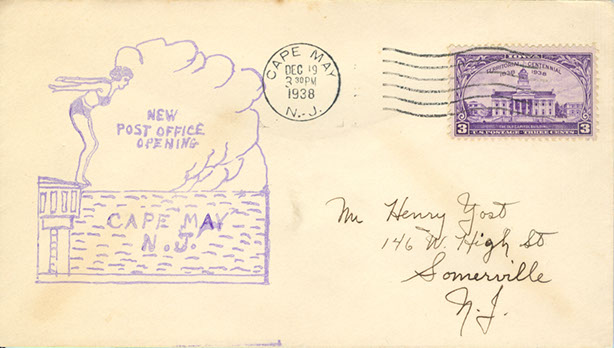 NEW
POST OFFICE
OPENING
CAPE MAY
N.J.
CAPE MAY
DEC 19
3 30PM
1938
N.-J.
IOWA
TERRITORIAL CENTENNIAL
1838 1938
THE OLD CAPITOL BUILDING
3 U.S. POSTAGE THREE CENTS 3
Mr Henry Yost
146 W. High St
Somerville
N.J.